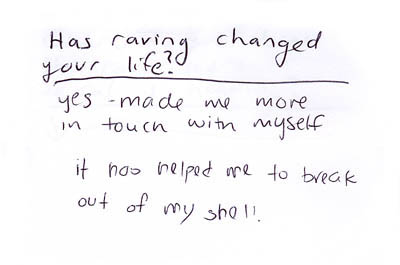 Has raving changed
your life?
yes - made me more
in touch with myself
it has helped me to break
out of my shell.